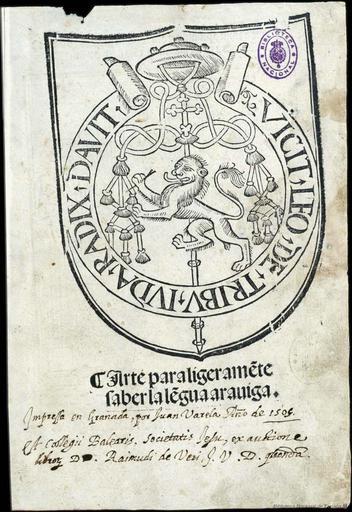 BIBLIOTECA NACIONAL
VICIT · LEO · DE · TRIBV · IVDA · RADIX · DAVIT
¶ Arte para ligeramẽte
saber la lẽgua arauiga.
Impressa en Granada, por Juan Varela Año de 1505.
Collegii Balearis. Societatis Jesu, ex auctione
libror D. Raimudi de Veri. J. V. D.